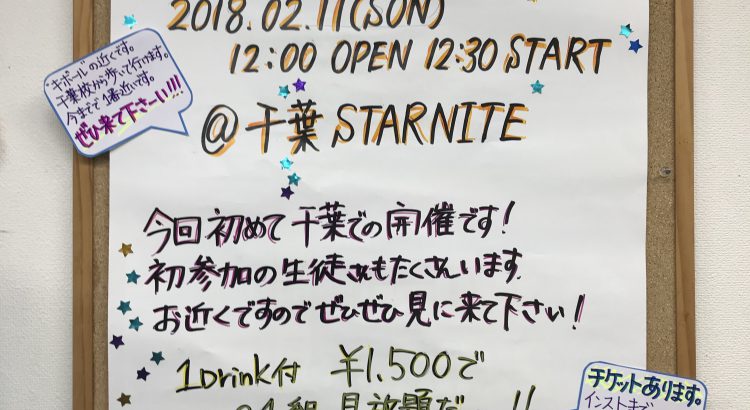 2018.02.11(SUN)
12:00 OPEN 12:30 START
@千葉 STARNITE
"キボール"の近くです。
千葉校から歩いて行けます。
今までで1番近いです。
ぜひ来て下さーい!!!
今回初めて千葉での開催です!
初参加の生徒さんもたくさんいます
お近くですのでぜひぜひ見に来て下さい!
1Drink付 ¥1,500で
見放題だ
チケットあります。